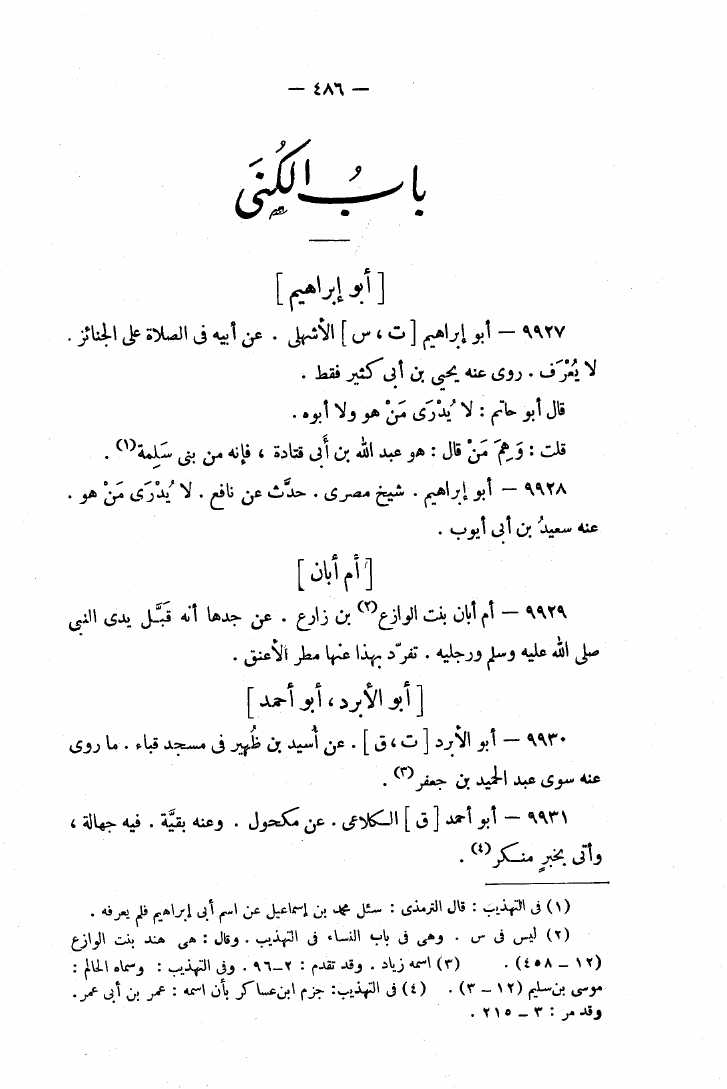 — ٤٨٦ —
بابُ الكُنَى
[ أبو إبراهيم ]
٩٩٢٧ — أبو إبراهيم [ ت ، س ] الأشهلى . عن أبيه فى الصلاة على الجنائز .
لا يُعْرَف . روى عنه يحيى بن أبى كثير فقط .
قال أبو حاتم : لا يُدْرَى مَنْ هو ولا أبوه .
قلت : وَهِمَ مَنْ قال : هو عبد الله بن أَبى قتادة ، فإنه من بنى سَلِمة(١) .
٩٩٢٨ — أبو إبراهيم . شيخ مصرى . حدَّث عن نافع . لا يُدْرَى مَنْ هو .
عنه سعيدُ بن أبى أيوب .
[ أم أبان ]
٩٩٢٩ — أم أبان بنت الوازع(٢) بن زارع . عن جدها أنه قَبَّل يدى النبى
صلى الله عليه وسلم ورجليه . تفرّد بهذا عنها مطر الأعنق .
[ أبو الأبرد ، أبو أحمد ]
٩٩٣٠ — أبو الأبرد [ ت ، ق ] . عن أُسيد بن ظُهير فى مسجد قباء . ما روى
عنه سوى عبد الحميد بن جعفر(٣) .
٩٩٣١ — أبو أحمد [ ق ] الكلاعى . عن مكحول . وعنه بقيَّة . فيه جهالة ،
وأتى بخبرٍ منكر(٤) .
(١) فى التهذيب : قال الترمذى : سئل محمد بن إسماعيل عن اسم أبى إبراهيم فلم يعرفه .
(٢) ليس فى س . وهى فى باب النساء فى التهذيب . وقال : هى هند بنت الوازع
(١٢ — ٤٥٨) . (٣) اسمه زياد . وقد تقدم : ٢—٩٦ . وفى التهذيب : وسماه الحاكم :
موسى بن سليم (١٢ — ٣) . (٤) فى التهذيب: جزم ابن عساكر بأن اسمه : عمر بن أبى عمر.
وقد مر : ٣ — ٢١٥ .